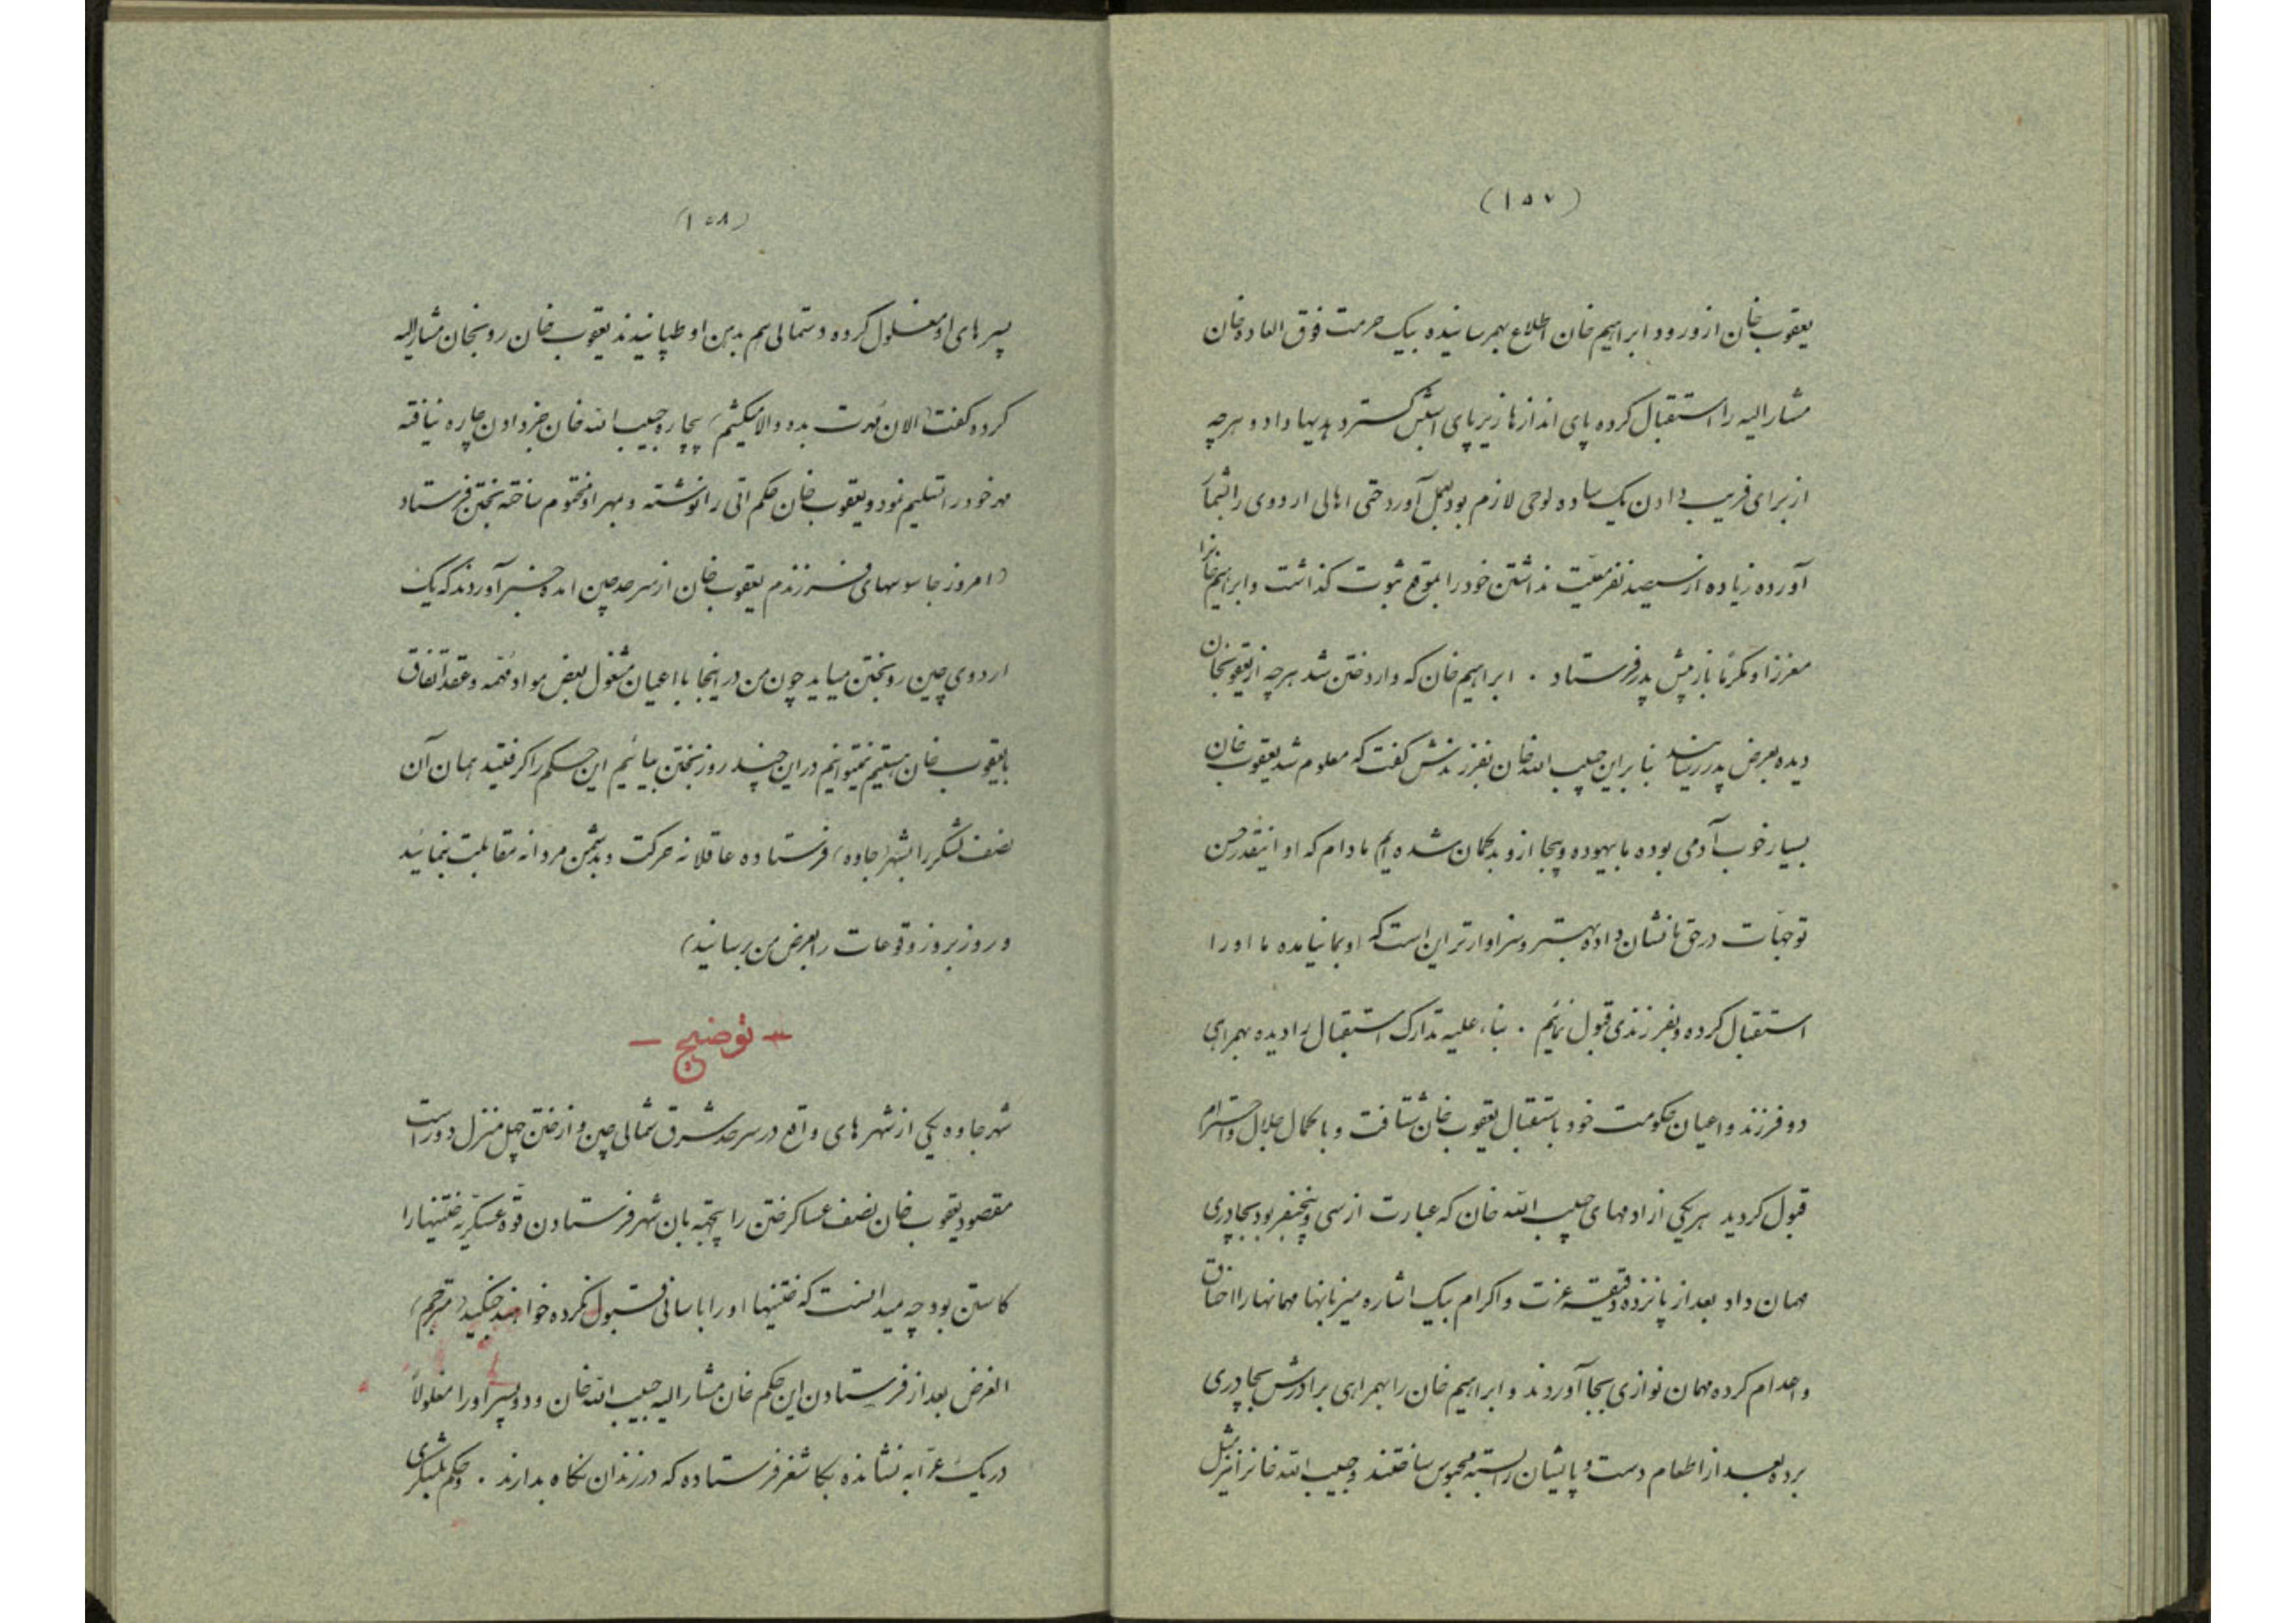 (۱۵۷)
یعقوب خان از ورود ابراهیم خان اطلاع بهمرسانیده بیک حرمت فوق العاده خان
مشارالیه را استقبال کرده پای اندازها زیر پای اسبش گسترد هدیها داد و هرچه
از برای فریب دادن یک ساده لوحی لازم بود بعمل آورد حتی اهالی اردوی را بشمار
آورده زیاده از سیصد نفر معیت نداشتن خود را بموقع ثبوت گذاشت و ابراهیم خانرا
معززا و مکرما باز پیش پدر فرستاد ۰ ابراهیم خان که وارد ختن شد هرچه از یعقوبخان
دیده بعرض پدر رسانید بنابراین حبیب الله خان بفرزندش گفت که معلوم شد یعقوب خان
بسیار خوب آدمی بوده ما بیهوده و بیجا ازو بدگمان شده ایم مادام که او اینقدر حسن
توجهات در حق ما نشان داده بهتر و سزاوارتر این است که او بما نیامده ما او را
استقبال کرده و بفرزندی قبول نمائیم ۰ بناء علیه تدارک استقبال را دیده بهمراهی
دو فرزند و اعیان حکومت خود باستقبال یعقوب خان شتافت و با کمال جلال و احترام
قبول گردید هر یکی از ادمهای حبیب الله خان که عبارت از سی و پنجنفر بود بچادری
مهمان داد بعد از پانزده دقیقه عزت و اکرام بیک اشاره میزبانها مهمانها را خناق
و اعدام کرده مهمان نوازی بجا آوردند و ابراهیم خان را بهمراهی برادرش بچادری
برده بعد از اطعام دست و پایشان را بسته محبوس ساختند و حبیب الله خانرا نیز مثل
(۱۵۸)
پسرهای او مغلول کرده و دستمالی هم بدهن او طپانیدند یعقوب خان رو بخان مشارالیه
کرده گفت (الان مهرت بده و الا میکشیم) بیچاره حبیب الله خان جز دادن چاره نیافته
مهر خود را تسلیم نمود و یعقوب خان حکم اتی را نوشته و بمهر او مختوم ساخته بختن فرستاد
(امروز جاسوسهای فرزندم یعقوب خان از سرحد چین امده خبر آوردند که یک
اردوی چین رو بختن میاید چون من در اینجا با اعیان مشغول بعض مواد مهمه و عقد اتفاق
با یعقوب خان هستیم نمیتوانیم در این چند روز بختن بیائیم این حکم را گرفتید همان آن
نصف لشکر را بشهر (جاوه) فرستاده عاقلانه حرکت و بدشمن مردانه مقابلت بنمائید
و روز بروز وقوعات را بعرض من برسانید)
— توضیح —
شهر جاوه یکی از شهرهای واقع در سرحد شرق شمالی چین و از ختن چهل منزل دور است
مقصود یعقوب خان نصف عساکر ختن را بان شهر فرستادن قوه عسکریه ختنیها را
کاستن بود چه میدانست که ختنیها او را باسانی قبول نکرده خواهند جنگید (مترجم)
الغرض بعد از فرستادن این حکم خان مشارالیه حبیب الله خان و دو پسر او را مغلولا
در یک عرابه نشانده بکاشغر فرستاده که در زندان نگاه بدارند ۰ و حکم بلشکری